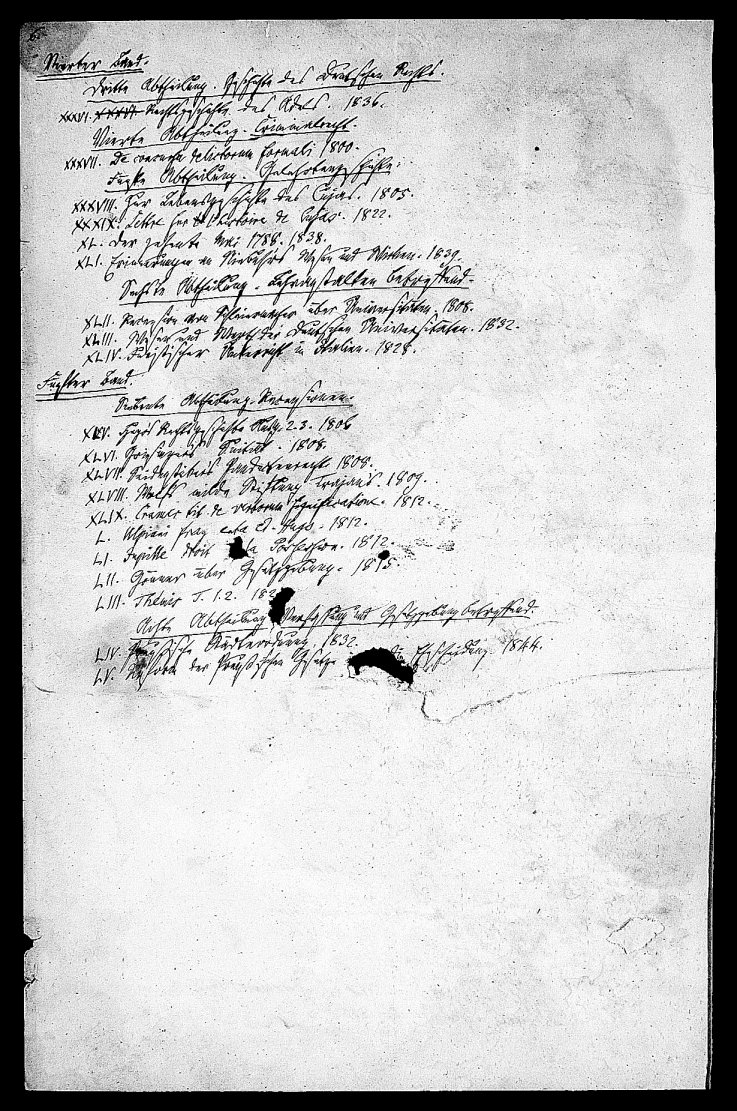 Vierter Band.
Dritte Abtheilung. Geschichte des Deutschen Rechts.
XXXVI. XXXVI Rechtsgeschichte des Adels. 1836.
Vierte Abtheilung. Criminalrecht.
XXXVII. De concursu delictorum formali 1800.
Fünfte Abtheilung. Gelehrtengeschichte.
XXXVIII. Zur Lebensgeschichte des Cujas. 1805.
XXXIX. Lettre sur l'histoire de Cujas. 1822.
XL. Der zehente Mai 1788. 1838.
XLI. Erinnerungen an Niebuhrs Wesen und Wirken. 1839.
Sechste Abtheilung. Lehranstalten betreffend.
XLII. Recension von Schleiermacher über Universitäten. 1808.
XLIII. Wesen und Werth der Deutschen Universitäten. 1832.
XLIV. Juristischer Unterricht in Italien. 1828.
Fünfter Band.
Siebente Abtheilung. Recensionen.
XLV. Hugos Rechtsgeschichte Ausg. 2.3. 1806
XLVI. 1808.
XLVII. Seidenstickers Pandektenrecht 1808.
XLVIII. Wolfs milde Stiftung Trajans 1809.
XLIX. Cramer tit. de verborum significatione. 1812.
L. Ulpiani frag. ed. Hugo. 1812.
LI. droit Possession. 1812.
LII. Gönner über Gesetzgebung. 1815
LIII. Themis T. 1.2. 182
Achte Abtheilung Verfassung und Gesetzgebung betreffend.
LIV. Preußische Städteordnung 1832
LV. Reform der Preußischen Gesetze die Ehescheidung 1844.